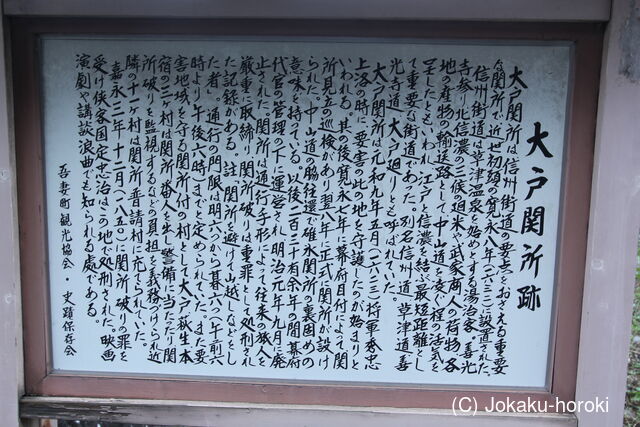 大戸関所跡
大戸関所は信州街道の要点をおさえる重要
な関所で近世初頭の寛永八年(一六三一)に設置された。
信州街道は草津温泉を始めとする湯治客・善光
寺参り北信濃の三候廻米や武家商人の荷物各
地の産物の輸送路として中山道を凌ぐ程の活気を
呈したともいわれ江戸と信濃を結ぶ最短距離とし
て重要な街道であった。別名信州道、草津道、善
光寺道、大戸廻りとも呼ばれていた。
大戸関所は元和九年五月(一六二三)将軍秀忠
上洛の時に要害の此の地を守護したのが始まりと
いわれる。其の後寛永七年に幕府目付によって関
所見立の巡検があり翌八年に正式に関所が設け
られた。中山道の脇往還で碓氷関所の裏固めの
意味を持ている。以後二百三十有余年の間幕府
代官の管理の下に運営され明治元年九月に廃
止された。関所は通行手形によって往来の旅人を
厳重に取締り、関所破りは重罪として処刑され
た記録がある。註 関所を避けて山越しなどをし
た者。通行の門限は明六つから暮六つ(午前六
時より午後六時まで)と定められていた。また要
害地域を守る関所付の村として大戸、萩生、本
宿の三ケ村は関所番人を出し警備に当たったり関
所破りを監視するなどの負担を義務づけられ近
隣の十一ケ村は関所普請村に充てられていた。
嘉永三年十二月(一八五〇)に関所破りの罪を
受け侠客国定忠治はこの地で処刑された。映画
演劇や講談、浪曲でも知られる処である。
吾妻町観光協会・史蹟保存会
(C) Jokaku-horoki